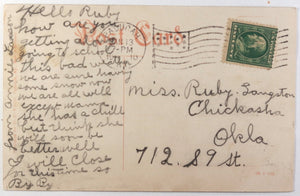 Hello Ruby
how are you
getting along
going to school
this bad weather
we are sure having
some snow now
we are all well
except mama
she has a chill
but think she
will soon be
better well
I will Close
for this time so
By By
from annie Season
Post Card
PM
Miss. Ruby. Langston
Chickasha
Okla
712. S 9 st.